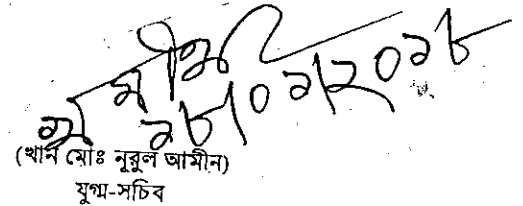 ১৮/০১/২০১৮
(খান মোঃ নূরুল আমীন)
যুগ্ম-সচিব